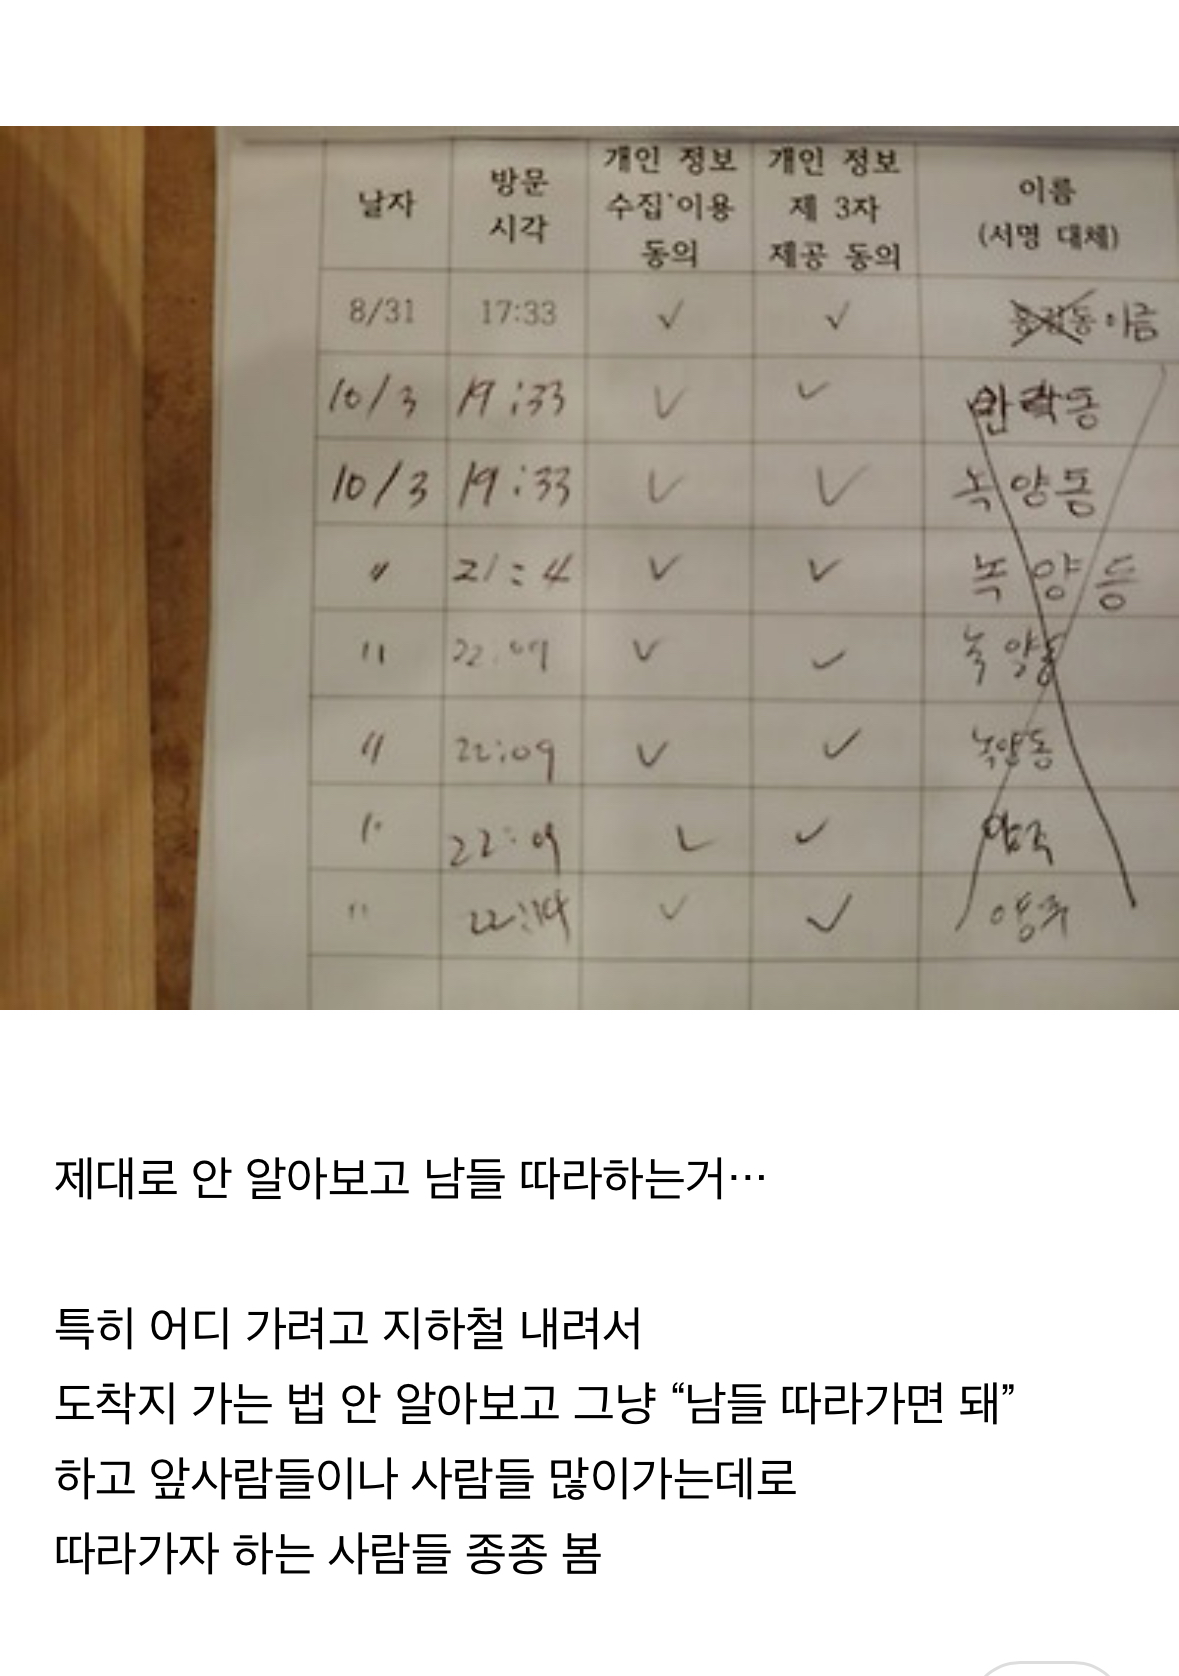 날자 방문 시각 개인 정보 수집·이용 동의 개인 정보 제 3자 제공 동의 이름 (서명 대체)
8/31 17:33 ✓ ✓ 동 이름
10/3 19:33 ✓ ✓ 동
10/3 19:33 ✓ ✓ 녹양동
〃 21:4 ✓ ✓ 녹양동
〃 ✓ ✓ 녹양동
〃 22:09 ✓ ✓ 녹양동
〃 22:09 ✓ ✓
〃 ✓ ✓
제대로 안 알아보고 남들 따라하는거…
특히 어디 가려고 지하철 내려서
도착지 가는 법 안 알아보고 그냥 “남들 따라가면 돼”
하고 앞사람들이나 사람들 많이가는데로
따라가자 하는 사람들 종종 봄